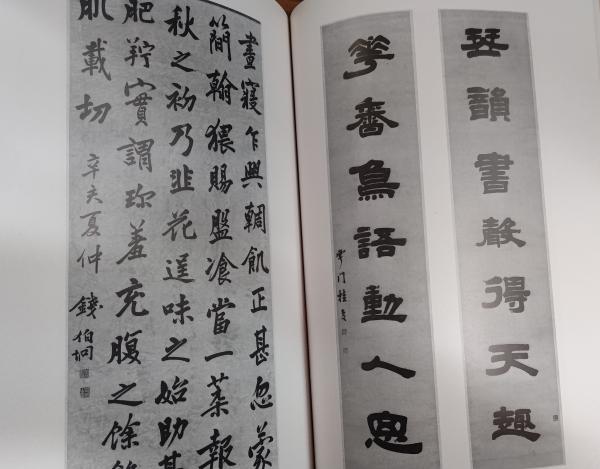 琴韻書聲得天趣
華香鳥語動人思
晝寢乍興輖飢正甚忽蒙
簡翰猥賜盤飡當一葉報
秋之初乃韭花逞味之始助其
肥羜實謂珍羞充腹之餘
肌載切
夏仲
錢伯坰